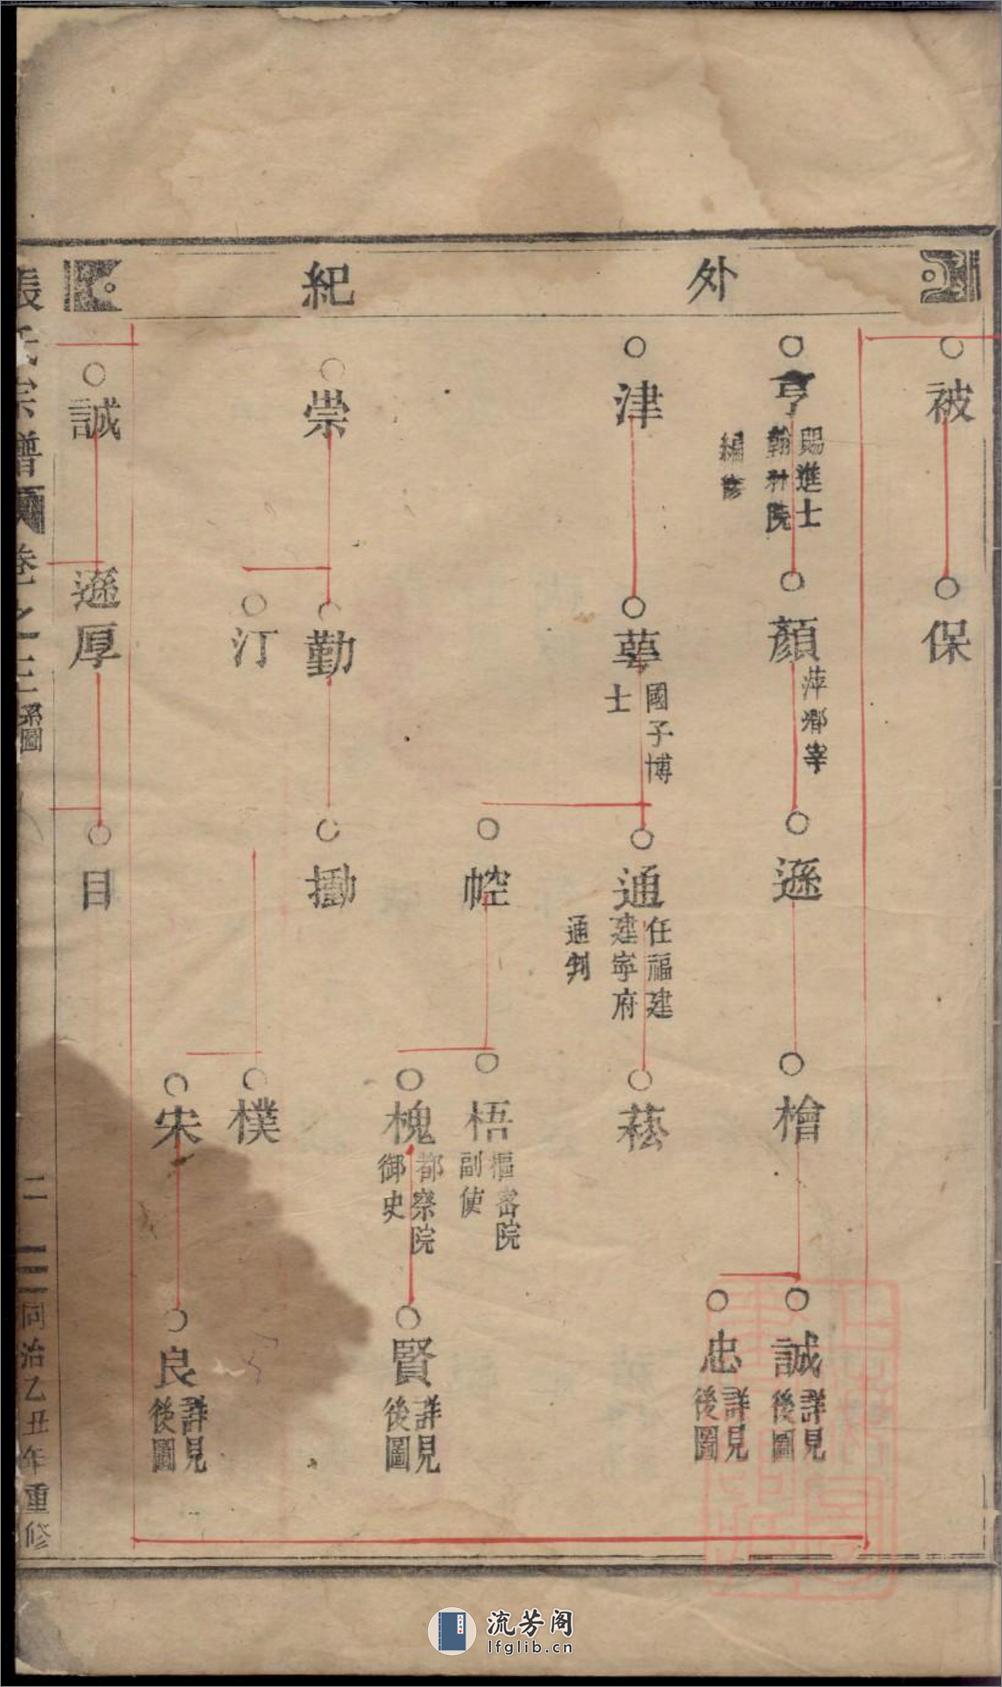 外紀
被
保
亨
賜進士
翰林院
編修
顏
萍鄉宰
遜
檜
誠
詳見
後圖
忠
詳見
後圖
津
萼
國子博
士
通
任福建
建寧府
通判
藝
崆
梧
樞密院
副使
槐
都察院
御史
賢
詳見
後圖
崇
勤
汀
擲
樸
宋
良
詳見
後圖
誠
遜
厚
目
張氏宗譜 卷之三 系圖
二
同治乙丑年重修
流芳阁
lfglib.cn